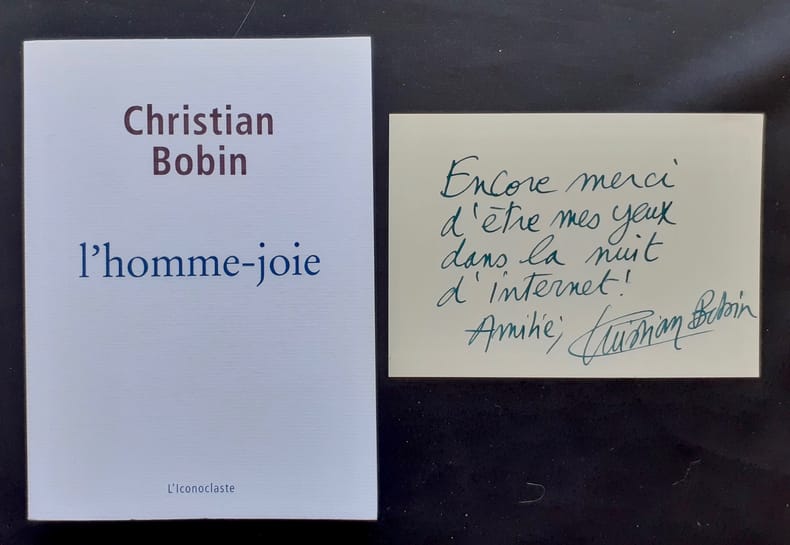 Christian
Bobin
l'homme-joie
L'Iconoclaste
Encore merci
d'être mes yeux
dans la nuit
d'internet!
Amitié, Christian Bobin